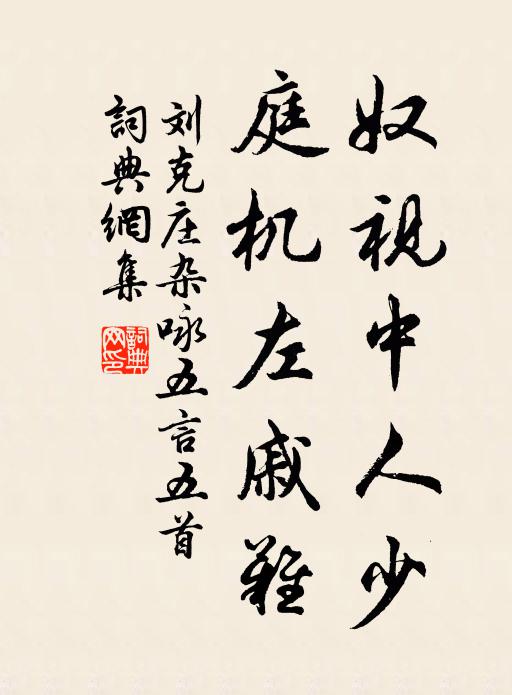 奴视中人少
庭机左戚难
刘克庄杂咏五言五首
詞典網集
詞典
网印